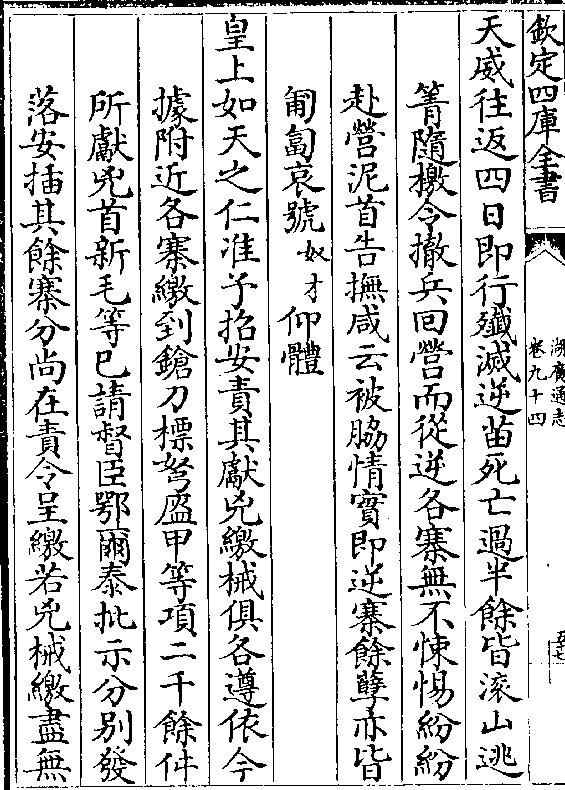 欽定四庫全書
湖廣通志
卷九十四
天威往返四日即行殲滅逆苗死亡過半餘皆滾山逃
箐隨檄令撤兵回營而從逆各寨無不悚惕紛紛
赴營泥首告撫咸云被脇情實即逆寨餘孽亦皆
匍匐哀號奴才仰體
皇上如天之仁准予招安責其獻兇繳械俱各遵依今
據附近各寨繳到鎗刀標弩盔甲等項二千餘件
所獻兇首新毛等已請督臣鄂爾泰批示分别發
落安插其餘寨分尚在責令呈繳若兇械繳盡無